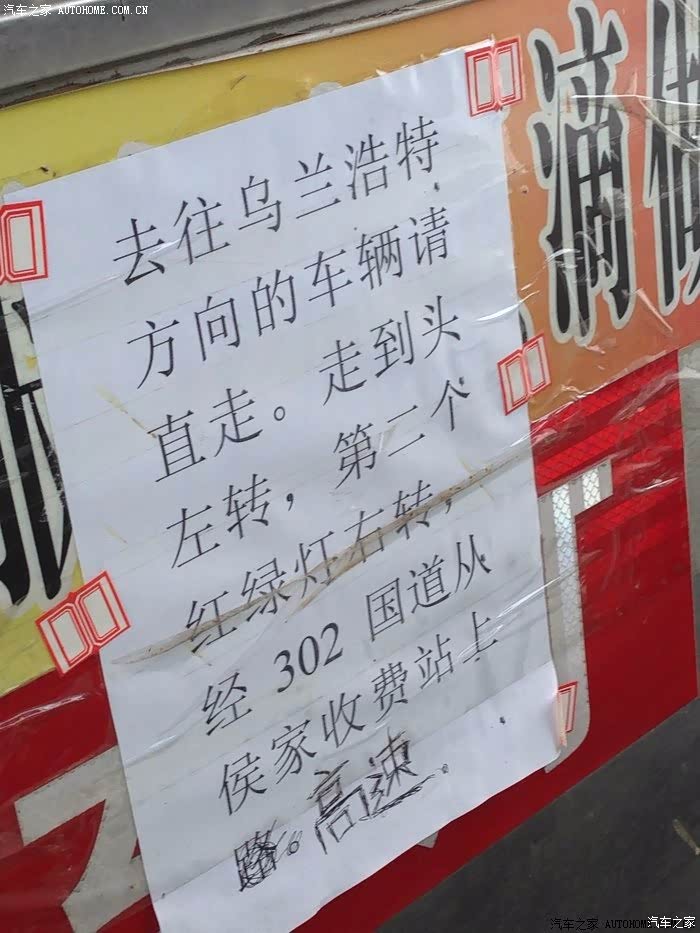 汽车之家 AUTOHOME.COM.CN
去往乌兰浩特
方向的车辆请
直走。走到头
左转，第二个
红绿灯右转，
经 302 国道从
侯家收费站上
路。高速.
滴
汽车之家 AUTOHOME.COM.CN
汽车之家